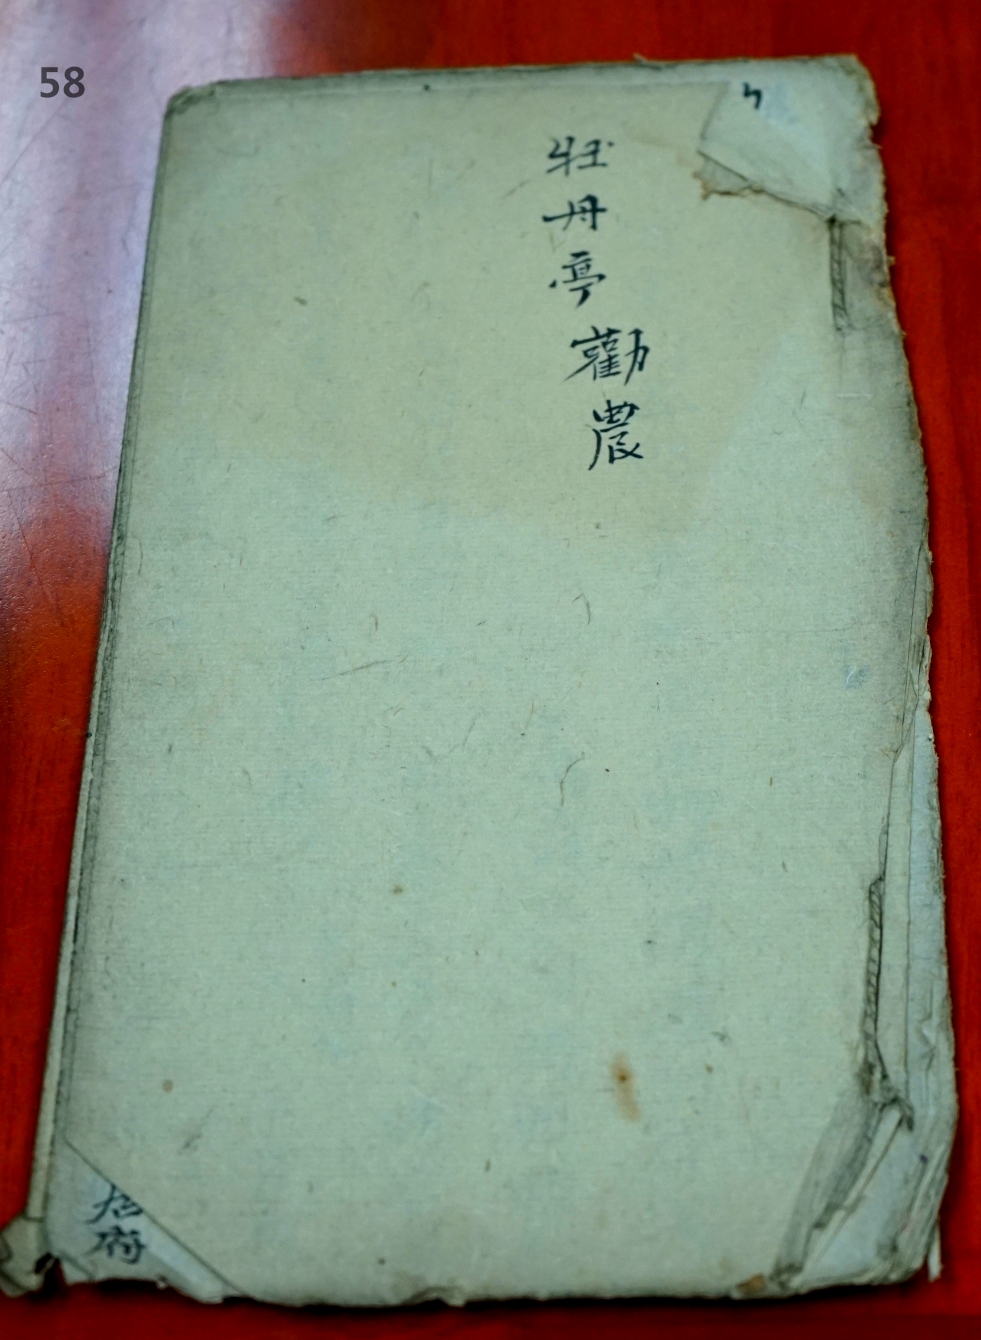 58
牡丹亭勸農
府